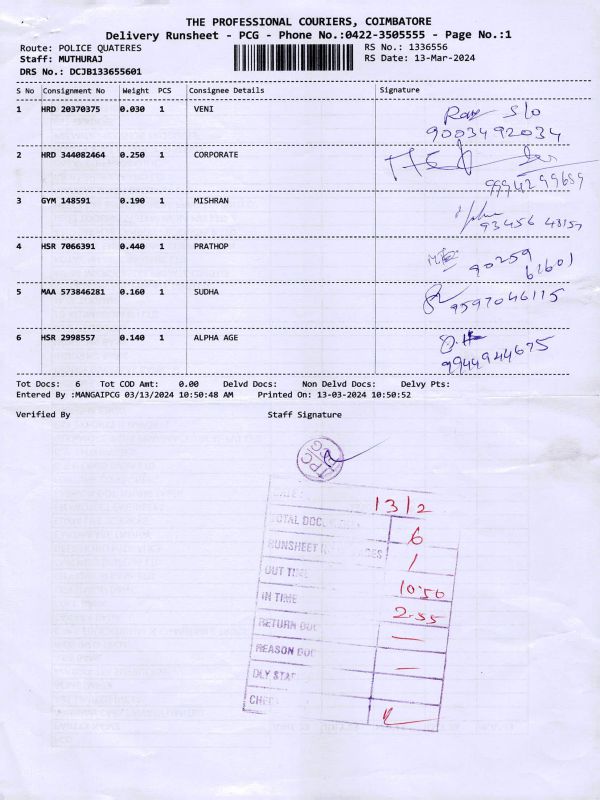 THE PROFESSIONAL COURIERS, COIMBATORE
Delivery Runsheet - PCG - Phone No.:0422-3505555 - Page No.:1
Route: POLICE QUATERES
RS No.: 1336556
Staff: MUTHURAJ
RS Date: 13-Mar-2024
DRS No.: DCJB133655601
S No Consignment No Weight PCS Consignee Details Signature
1 HRD 20370375 0.030 1 VENI
S/o
9003492034
2 HRD 344082464 0.250 1 CORPORATE
9994299689
3 GYM 148591 0.190 1 MISHRAN
93456 48157
4 HSR 7066391 0.440 1 PRATHOP
90259
61601
5 MAA 573846281 0.160 1 SUDHA
9597046115
6 HSR 2998557 0.140 1 ALPHA AGE
9944944675
Tot Docs: 6 Tot COD Amt: 0.00 Delvd Docs: Non Delvd Docs: Delvy Pts:
Entered By :MANGAIPCG 03/13/2024 10:50:48 AM Printed On: 13-03-2024 10:50:52
Verified By Staff Signature
13/2
TOTAL 6
RUNSHEET 1
OUT 10:50
IN TIME 2.55
RETURN —
REASON —
DLY